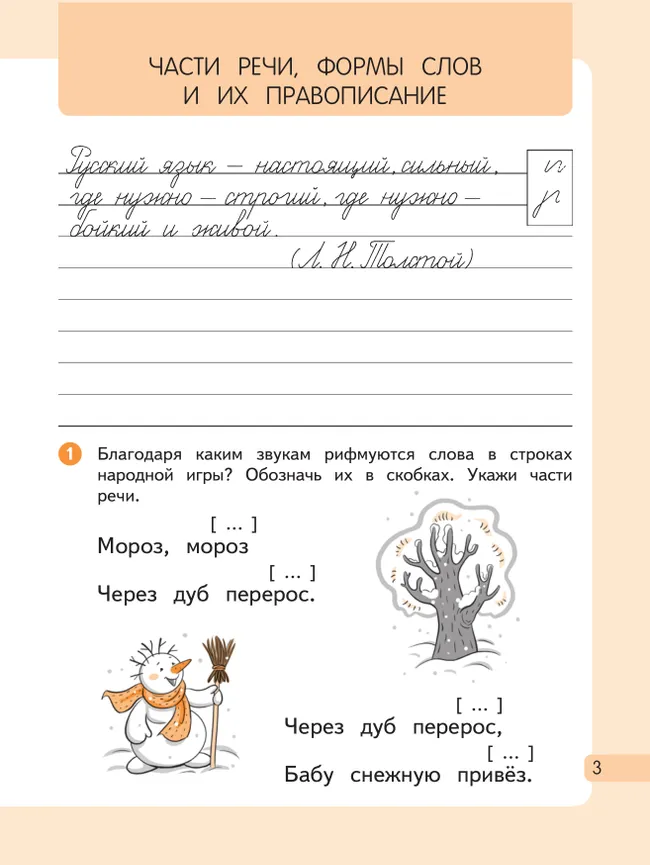 ЧАСТИ РЕЧИ, ФОРМЫ СЛОВ
И ИХ ПРАВОПИСАНИЕ
Русский язык – настоящий, сильный,
где нужно – строгий, где нужно –
бойкий и живой.
(Л. Н. Толстой)
1 Благодаря каким звукам рифмуются слова в строках
народной игры? Обозначь их в скобках. Укажи части
речи.
[ ... ]
Мороз, мороз
[ ... ]
Через дуб перерос.
[ ... ]
Через дуб перерос,
[ ... ]
Бабу снежную привёз.
3